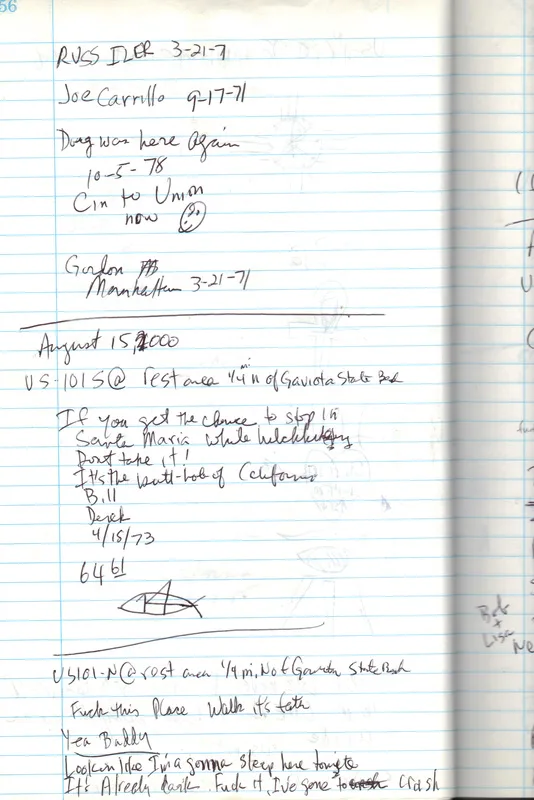 56
RUSS ILER 3-21-7
Joe Carrillo 9-17-71
Doug was here Again
10-5-78
Cin to Union
now
Gordon
Manhattan 3-21-71
August 15, 2000
US-101 S @ rest area 1/4 mi n of Gaviota State Bch
If you get the chance to stop in
Santa Maria while hitchhiking
Dont take it!
It's the butt-hole of California
Bill
Derek
4/15/73
64 61
US101-N @ rest area 1/4 mi. N of Gaviota State Bch
Fuck this Place Walk it's
Yea Buddy
Lookin like I'm a gonna sleep here tonite
It's Already dark. Fuck it, I've gone to crash
Bob
+
Lisa
Ne